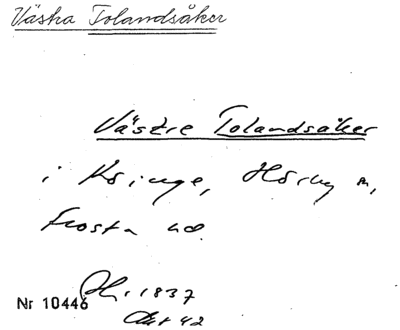 Väska Tolandsåker
Västre Tolandsåker
i Kringe, Hörby sn,
Frosta hd.
Hr. 1837
Nr 10446
Akt 42